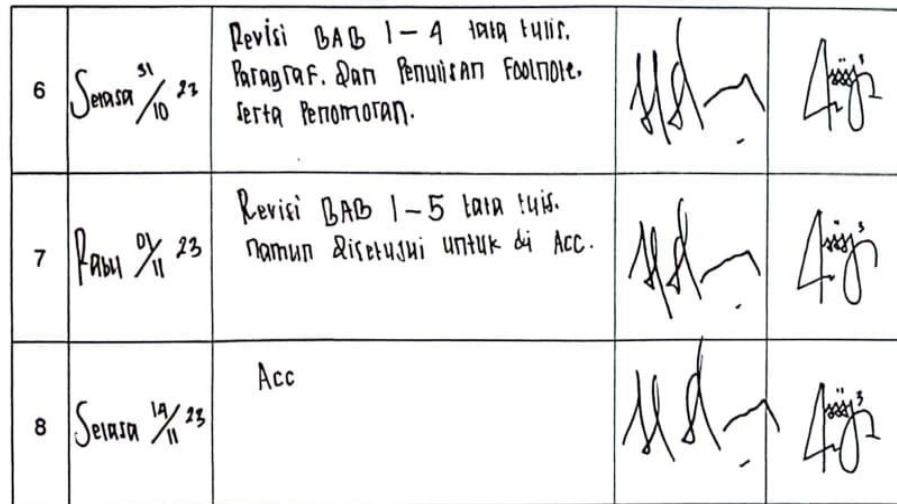 6
Selasa 31/10 23
Revisi BAB 1-4 tata tulis.
Paragraf. Dan Penulisan Footnote.
serta Penomoran.
7
Rabu 01/11 23
Revisi BAB 1-5 tata tulis.
namun disetujui untuk di Acc.
8
Selasa 14/11 23
Acc